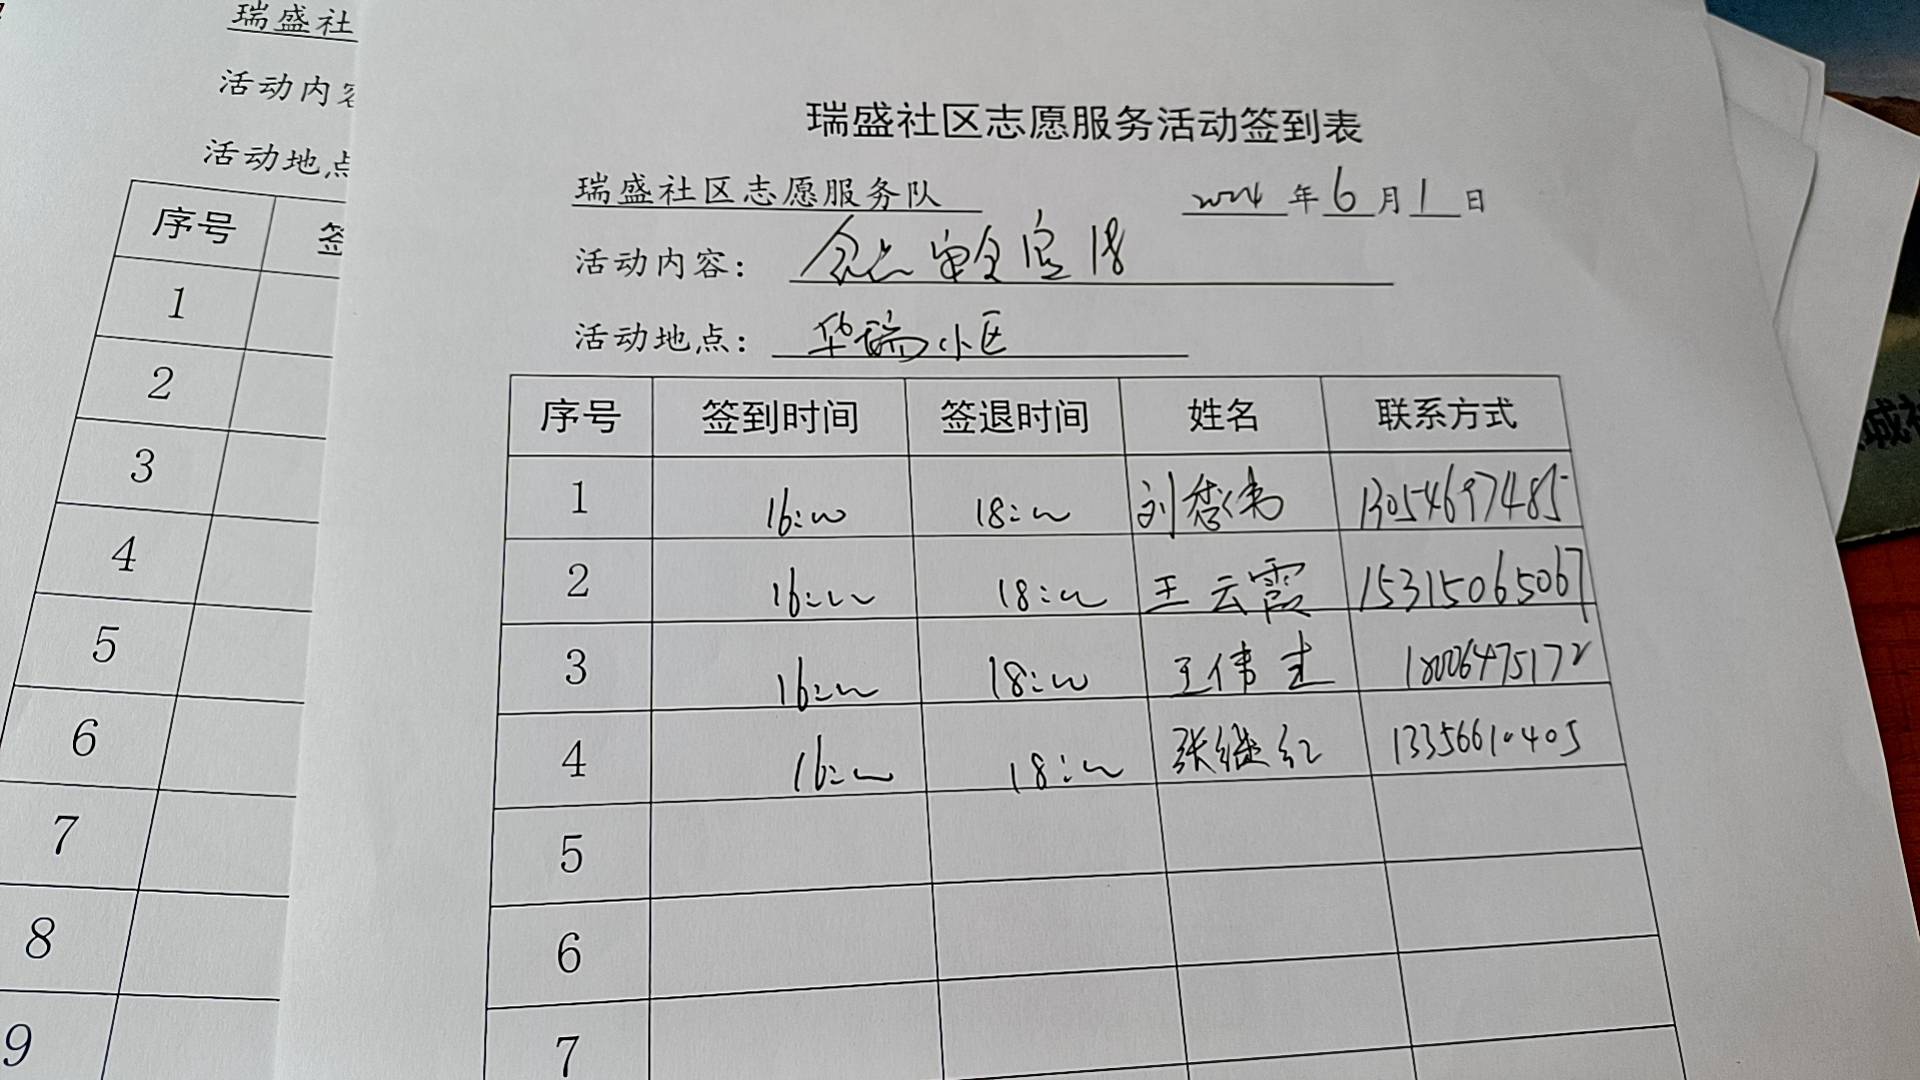 瑞盛社
活动内容
活动地点
序号 签
1
2
3
4
5
6
7
8
9
瑞盛社区志愿服务活动签到表
瑞盛社区志愿服务队 2024年6月1日
活动内容：
活动地点：华瑞小区
序号 签到时间 签退时间 姓名 联系方式
1 16:00 18:00 刘 伟 13054697485
2 16:00 18:00 王云霞 15315065067
3 16:00 18:00 王伟 18006475172
4 16:00 18:00 张继红 13356610405
5
6
7
城社